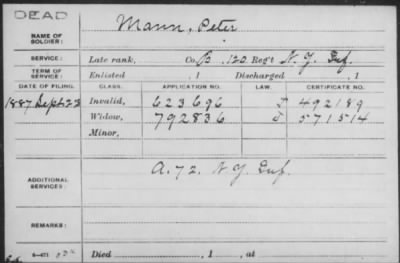 DEAD
NAME OF SOLDIER: Mann, Peter
SERVICE: Late rank, Co. B, 120 Reg't N.Y. Inf.
TERM OF SERVICE: Enlisted , 1 Discharged , 1
DATE OF FILING. CLASS. APPLICATION NO. LAW. CERTIFICATE NO.
1887 Sept. 22 Invalid, 623696 J 492189
Widow, 792836 J 571514
Minor,
ADDITIONAL SERVICES: A. 72. N.Y. Inf.
REMARKS:
Died , 1 , at